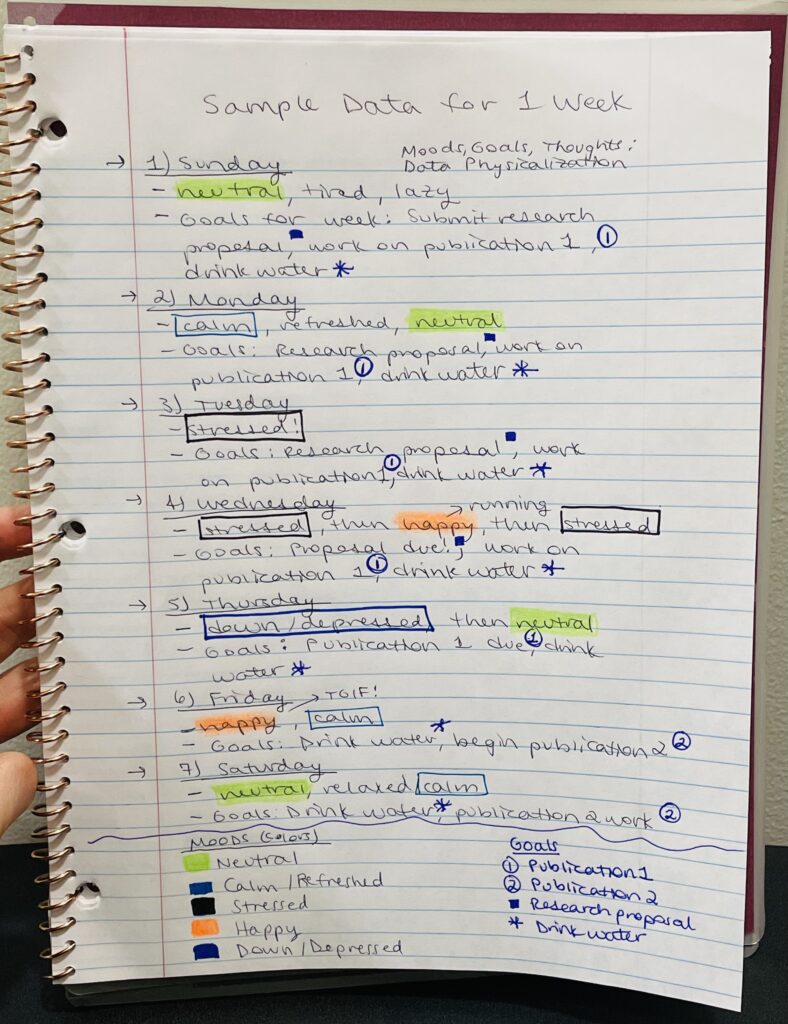 Sample Data for 1 Week
Moods, Goals, Thoughts:
Data Physicalization
→ 1) Sunday
- neutral, tired, lazy
- Goals for week: Submit research
proposal, ■ work on publication 1, ①
drink water *
→ 2) Monday
- calm, refreshed, neutral
- Goals: Research proposal, ■ work on
publication 1, ① drink water *
→ 3) Tuesday
- stressed!
- Goals: Research proposal ■, work
on publication 1, ① drink water *
→ 4) Wednesday
→ running
- stressed, then happy, then stressed
- Goals: Proposal due! ■, work on
publication 1, ① drink water *
→ 5) Thursday
- down/depressed then neutral
- Goals: Publication 1 due, ① drink
water *
→ 6) Friday → TGIF!
- happy, calm
- Goals: Drink water, * begin publication 2 ②
→ 7) Saturday
- neutral, relaxed calm
- Goals: Drink water, * publication 2 work ②
Moods (colors)
Neutral
Calm/Refreshed
Stressed
Happy
Down/Depressed
Goals
① Publication 1
② Publication 2
■ Research proposal
* Drink water